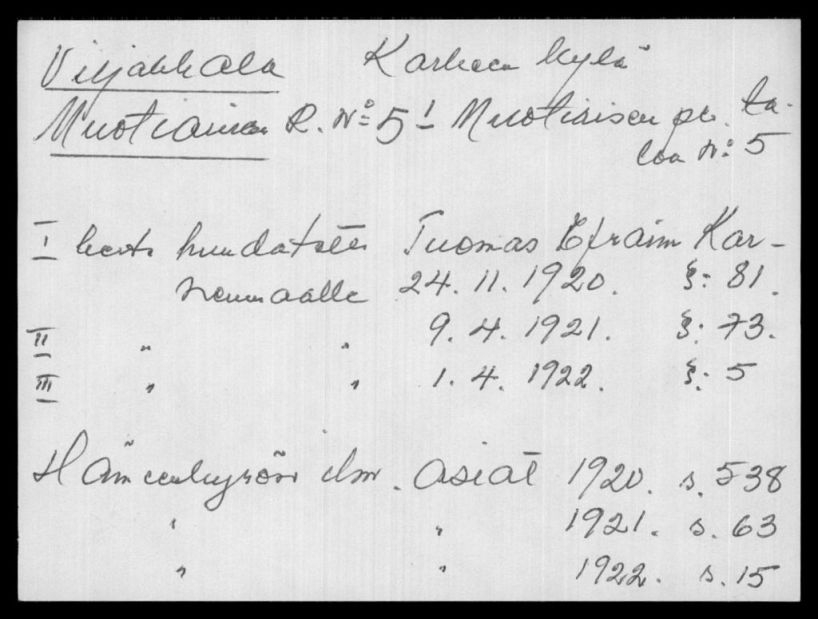 Viljakkala Karhen kylä
Muotiainen R. Nº 5¹ Muotiaisen per. ta-
loa Nº 5
I kerta huudatettu Tuomas Efraim Kar-
henmaalle 24. 11. 1920. §: 81.
II " " 9. 4. 1921. §: 73.
III " " 1. 4. 1922. §: 5
Hämeenkyrön ilm. asiat 1920. s. 538
" " 1921. s. 63
" " 1922. s. 15